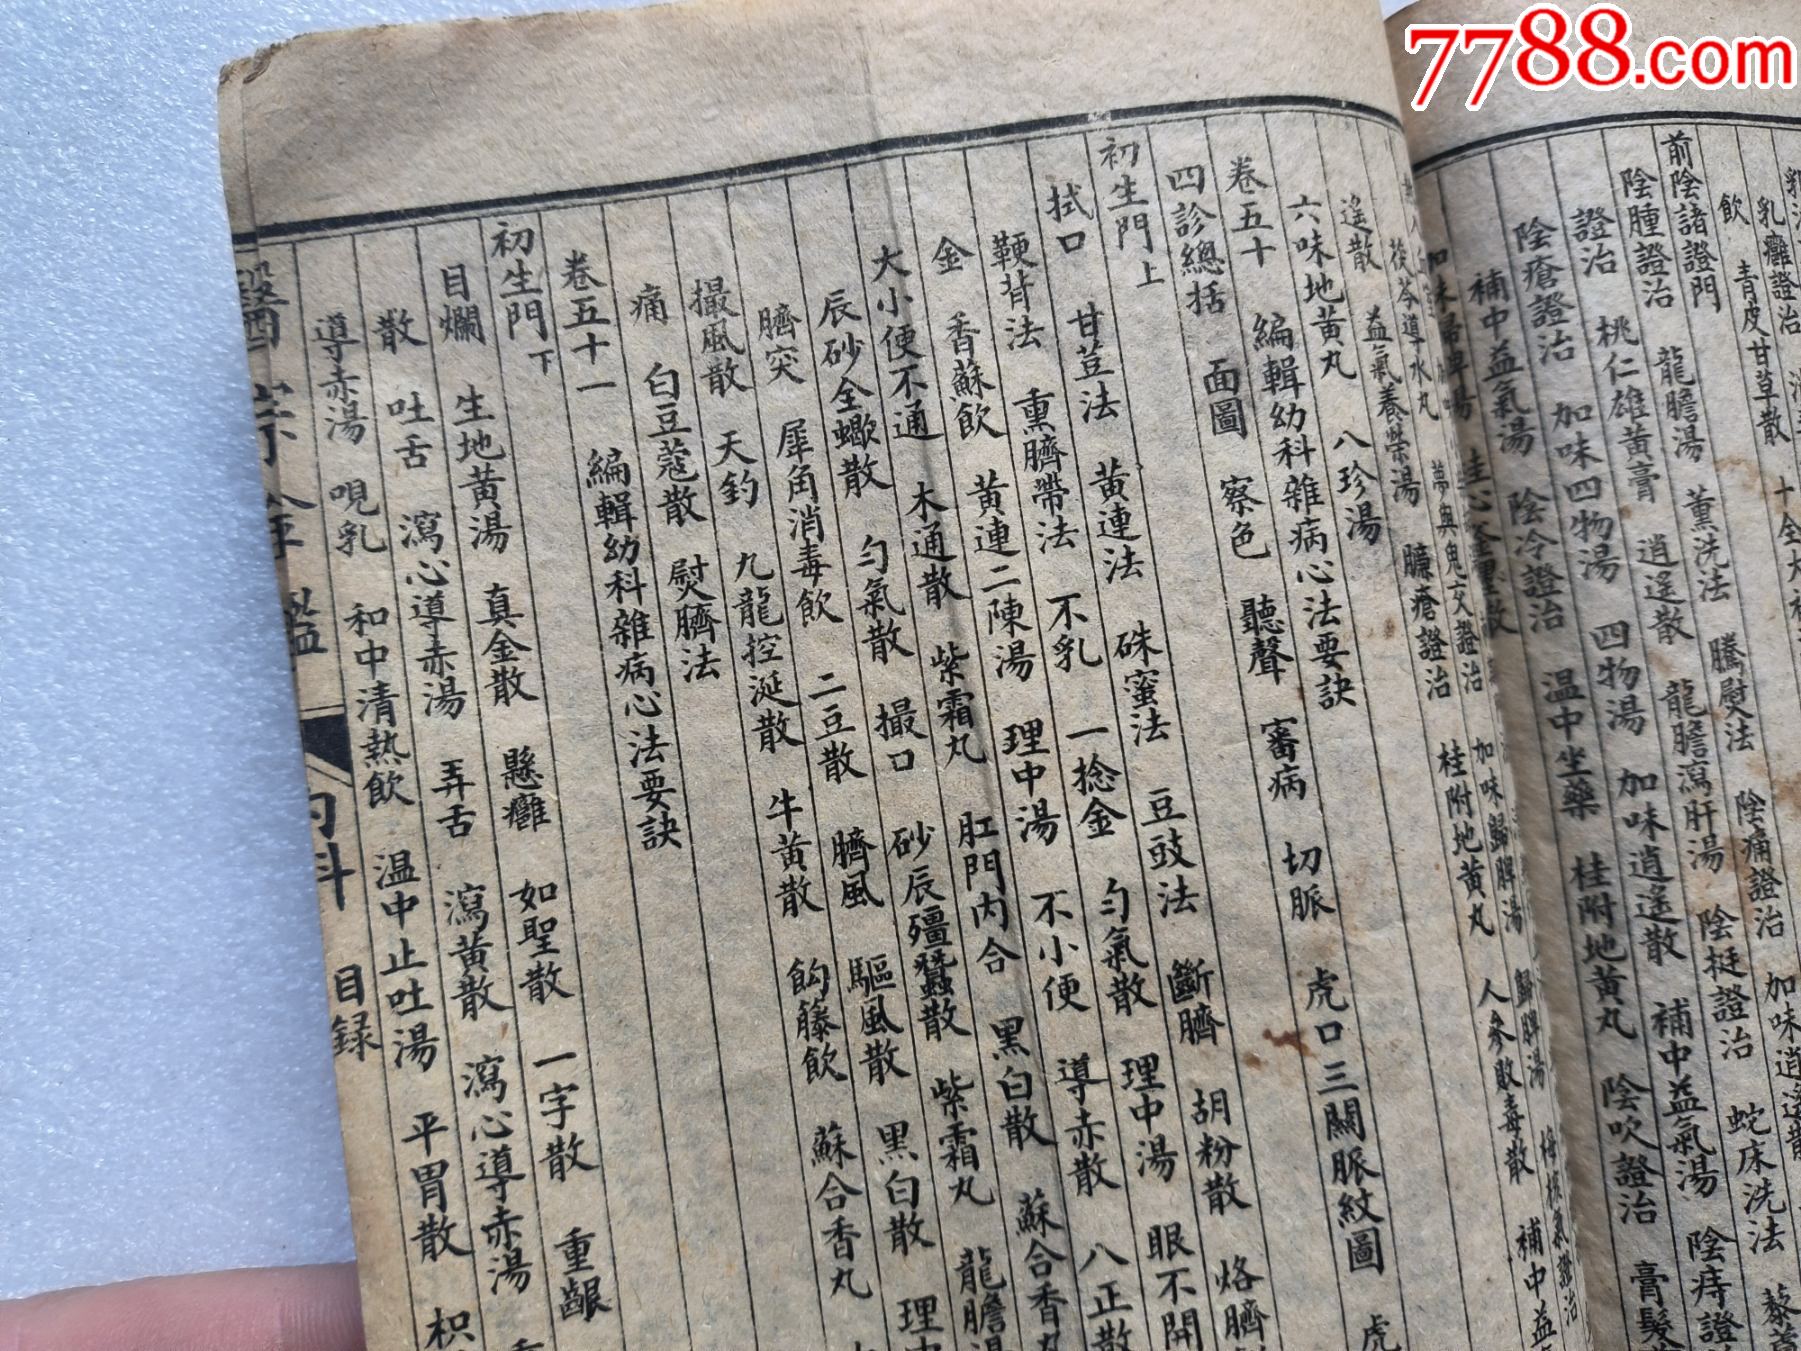 7788.com
飲 青皮甘草散
前陰諸證門 龍膽湯 薰洗法 騰熨法 陰痛證治 加味逍遙散
陰腫證治 桃仁雄黃膏 逍遙散 龍膽瀉肝湯 陰挺證治 蛇床洗法
證治 加味四物湯 四物湯 加味逍遙散 補中益氣湯 陰痔證
陰瘡證治 陰冷證治 溫中坐藥 桂附地黃丸 陰吹證治 膏髮
補中益氣湯
茯苓導水丸 夢與鬼交證治 加味歸脾湯 歸脾湯 梅核氣證治
遙散 益氣養榮湯 臁瘡證治 桂附地黃丸 人參敗毒散 補中益
六味地黃丸 八珍湯
卷五十 編輯幼科雜病心法要訣
四診總括 面圖 察色 聽聲 審病 切脈 虎口三關脈紋圖 虎
初生門上
拭口 甘荳法 黃連法 硃蜜法 豆豉法 斷臍 胡粉散 烙臍
鞕背法 熏臍帶法 不乳 一捻金 勻氣散 理中湯 眼不開
金 香蘇飲 黃連二陳湯 理中湯 不小便 導赤散 八正散
大小便不通 木通散 紫霜丸 肛門內合 黑白散 蘇合香丸
辰砂全蠍散 勻氣散 撮口 砂辰殭蠶散 紫霜丸 龍膽湯
臍突 犀角消毒飲 二豆散 臍風 驅風散 黑白散 理中
撮風散 天釣 九龍控涎散 牛黃散 鈎籐飲 蘇合香丸
痛 白豆蔻散 熨臍法
卷五十一 編輯幼科雜病心法要訣
初生門下
目爛 生地黃湯 真金散 懸癰 如聖散 一字散 重齦
散 吐舌 瀉心導赤湯 弄舌 瀉黃散 瀉心導赤湯
導赤湯 哯乳 和中清熱飲 溫中止吐湯 平胃散 枳
醫宗金鑑 內科 目録